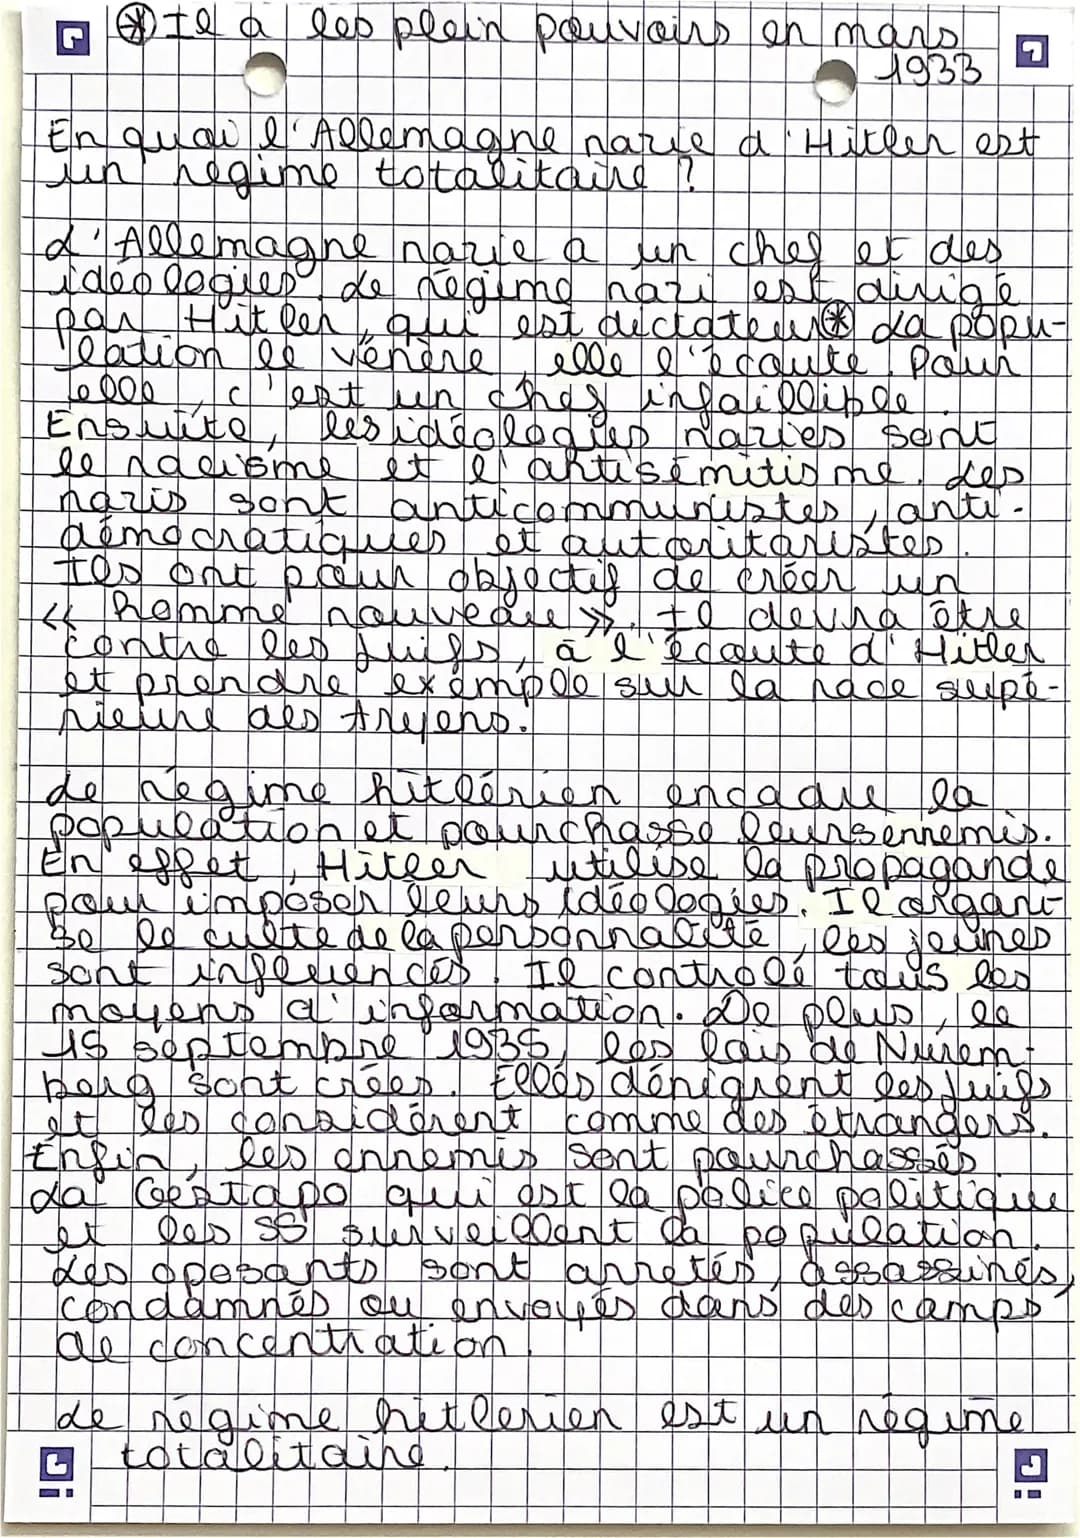 ⊛ Il a les plein pouvoirs en mars
1933
En quoi l'Allemagne nazie d'Hitler est
un régime totalitaire ?
L'Allemagne nazie a un chef et des
idéologies. Le régime nazi est dirigé
par Hitler, qui est dictateur⊛ La popu-
lation le vénère, elle l'écoute. Pour
elle, c'est un chef infaillible.
Ensuite, les idéologies nazies sont
le racisme et l'antisémitisme. Les
nazis sont anticommunistes, anti-
démocratiques et autoritaristes.
Ils ont pour objectif de créer un
« homme nouveau ». Il devra être
contre les Juifs, à l'écoute d'Hitler
et prendre exemple sur la race supé-
rieure des Aryens.
Le régime hitlérien encadre la
population et pourchasse leurs ennemis.
En effet, Hitler utilise la propagande
pour imposer leurs idéologies. Il organi-
se le culte de la personnalité, les jeunes
sont influencés. Il contrôle tous les
moyens d'information. De plus, le
15 septembre 1935, les lois de Nurem-
berg sont crées. Elles dénigrent les Juifs
et les considèrent comme des étrangers.
Enfin, les ennemis sont pourchassés.
La Gestapo qui est la police politique
et les SS surveillent la population.
Les oposants sont arretés, assassinés,
condamnés ou envoyés dans des camps
de concentration.
Le régime hitlerien est un régime
totalitaire.